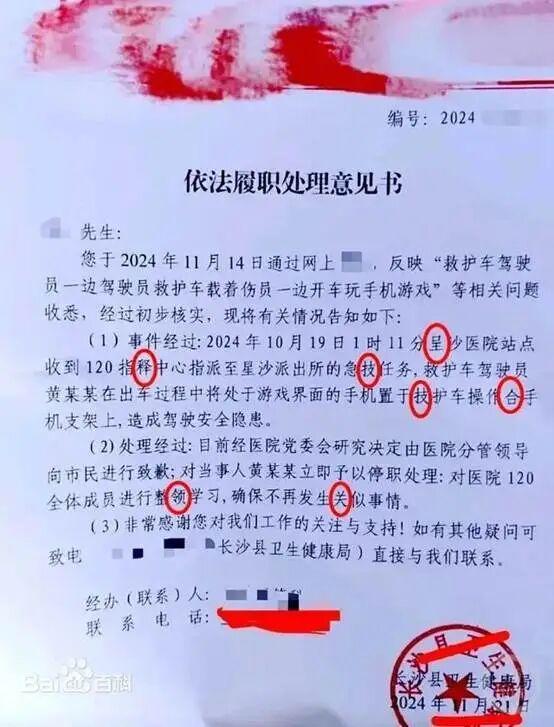 编号：2024
依法履职处理意见书
先生：
您于 2024 年 11 月 14 日通过网上，反映“救护车驾驶
员一边驾驶员救护车载着伤员一边开车玩手机游戏”等相关问题
收悉，经过初步核实，现将有关情况告知如下：
（1）事件经过：2024 年 10 月 19 日 1 时 11 分呈沙医院站点
收到 120 指释中心指派至星沙派出所的急技任务，救护车驾驶员
黄某某在出车过程中将处于游戏界面的手机置于技护车操作合手
机支架上，造成驾驶安全隐患。
（2）处理经过：目前经医院党委会研究决定由医院分管领导
向市民进行致歉；对当事人黄某某立即予以停职处理；对医院 120
全体成员进行整领学习，确保不再发生关似事情。
（3）非常感谢您对我们工作的关注与支持！如有其他疑问可
致电 长沙县卫生健康局）直接与我们联系。
经办（联系）人：
联 系 电 话：
长沙县卫生健康局
长沙县卫生健康局
2024 年 11 月 21 日
Bai 百科